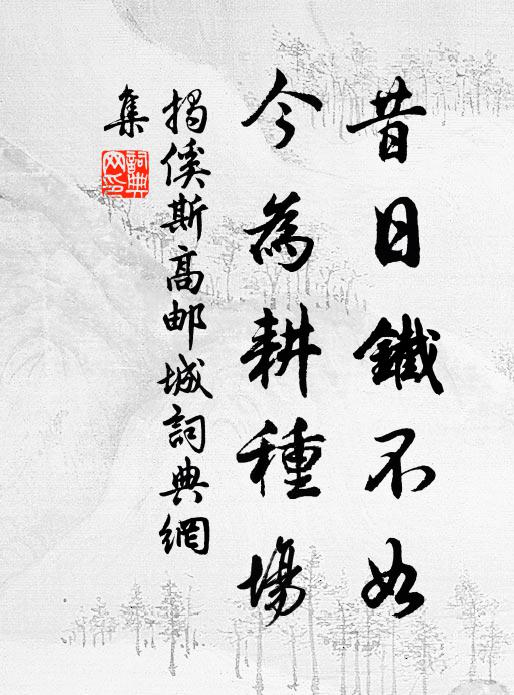 昔日鐵不如
今為耕種場
揭傒斯高邮城詞典網
集
詞典网印